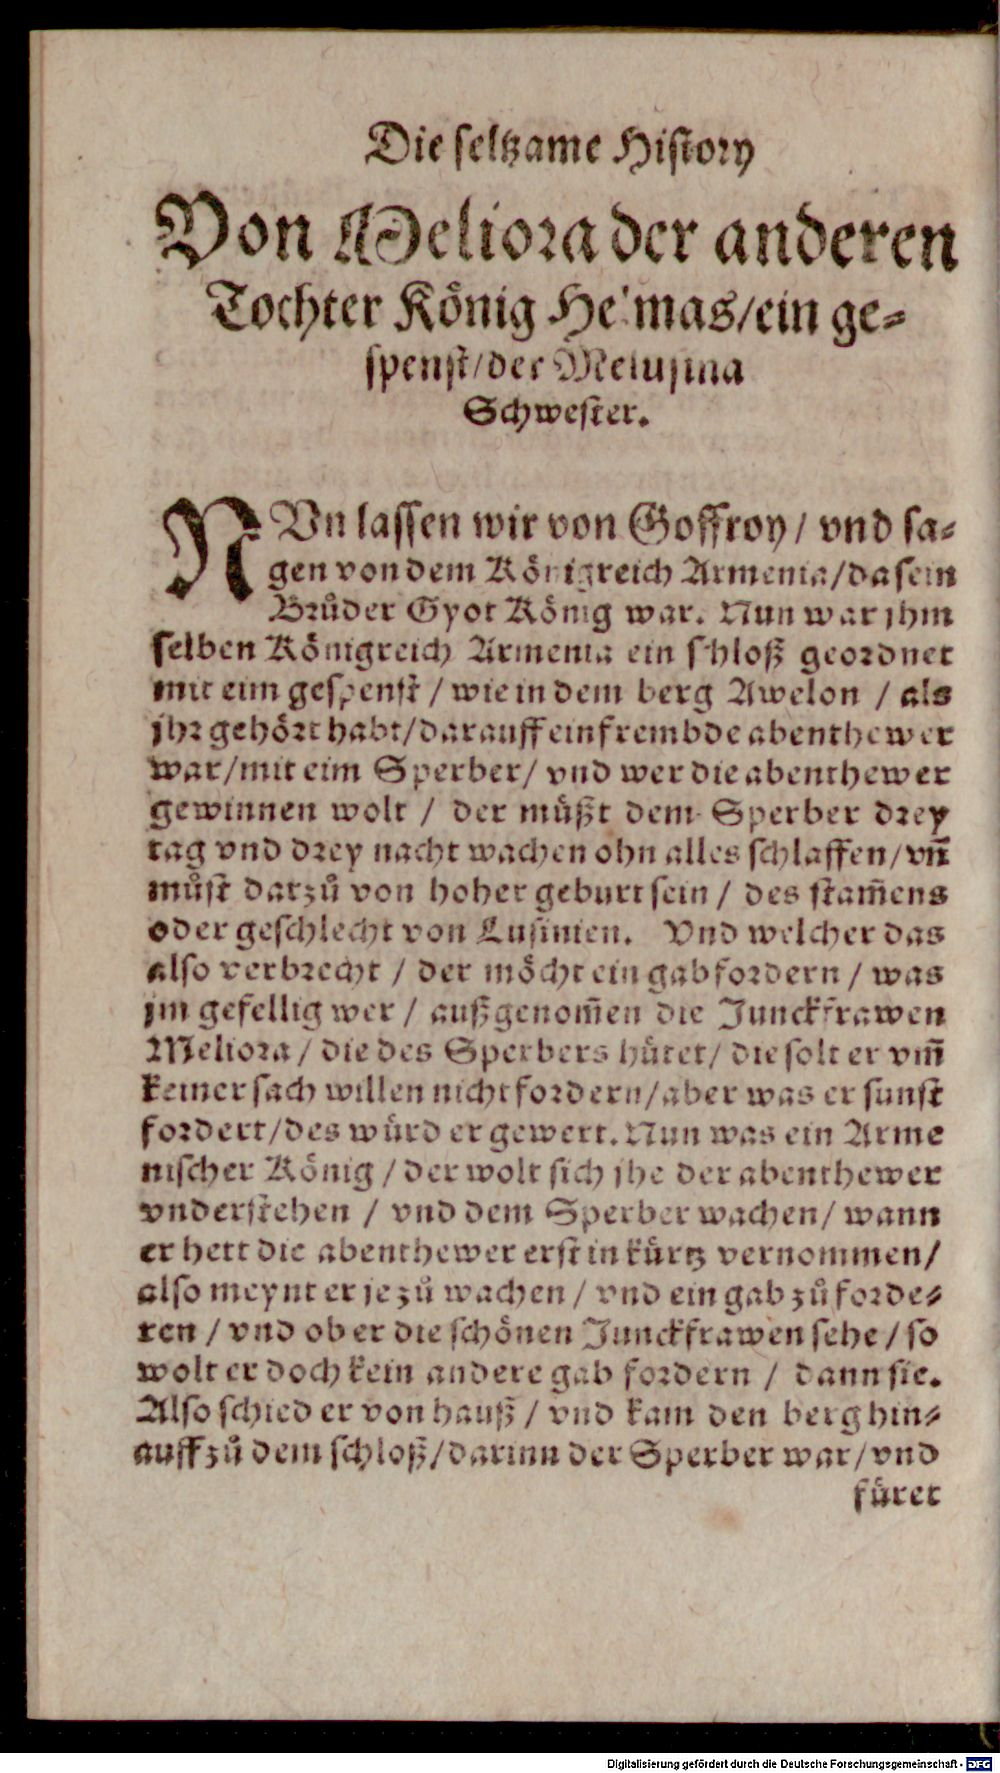 Die seltzame History
Von Meliora der anderen
Tochter König Helmas/ein ge-
spenst/der Melusina
Schwester.
NVn lassen wir von Goffroy/ vnd sa-
gen von dem Königreich Armenia/da sein
Brůder Gyot König war. Nun war jhm
selben Königreich Armenia ein schloß geordnet
mit eim gespenst / wie in dem berg Awelon / als
jhr gehört habt/darauff ein frembde abenthewer
war/mit eim Sperber/ vnd wer die abenthewer
gewinnen wolt / der müßt dem Sperber drey
tag vnd drey nacht wachen ohn alles schlaffen/vñ
můst darzů von hoher geburt sein / des stam̄ens
oder geschlecht von Lusinien. Vnd welcher das
also verbrecht / der möcht ein gab fordern / was
jm gefellig wer / außgenom̄en die Junckfrawen
Meliora / die des Sperbers hütet/ die solt er vm̄
keiner sach willen nicht fordern/aber was er sunst
fordert/des würd er gewert. Nun was ein Arme
nischer König / der wolt sich jhe der abenthewer
vnderstehen / vnd dem Sperber wachen/ wann
er hett die abenthewer erst in kürtz vernommen/
also meynt er je zů wachen / vnd ein gab zů forde-
ren / vnd ob er die schönen Junckfrawen sehe / so
wolt er doch kein andere gab fordern / dann sie.
Also schied er von hauß / vnd kam den berg hin-
auff zů dem schloß/darinn der Sperber war/vnd
füret
Digitalisierung gefördert durch die Deutsche Forschungsgemeinschaft - DFG